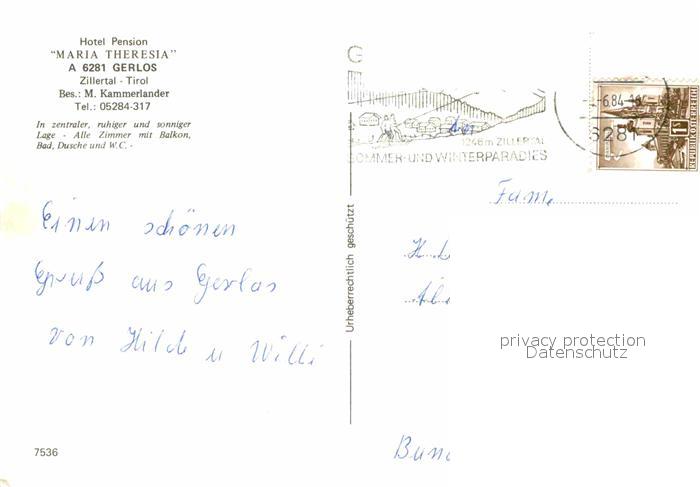 Hotel Pension
"MARIA THERESIA"
A 6281 GERLOS
Zillertal - Tirol
Bes.: M. Kammerlander
Tel.: 05284-317
In zentraler, ruhiger und sonniger
Lage - Alle Zimmer mit Balkon,
Bad, Dusche und W.C. -
G
1246m ZILLERTAL
SOMMER- UND WINTERPARADIES
6.84
6281
REPUBLIK ÖSTERREICH
Fam.
Einen schönen
Gruß aus Gerlos
von Hilde u Willi
Urheberrechtlich geschützt
privacy protection
Datenschutz
7536